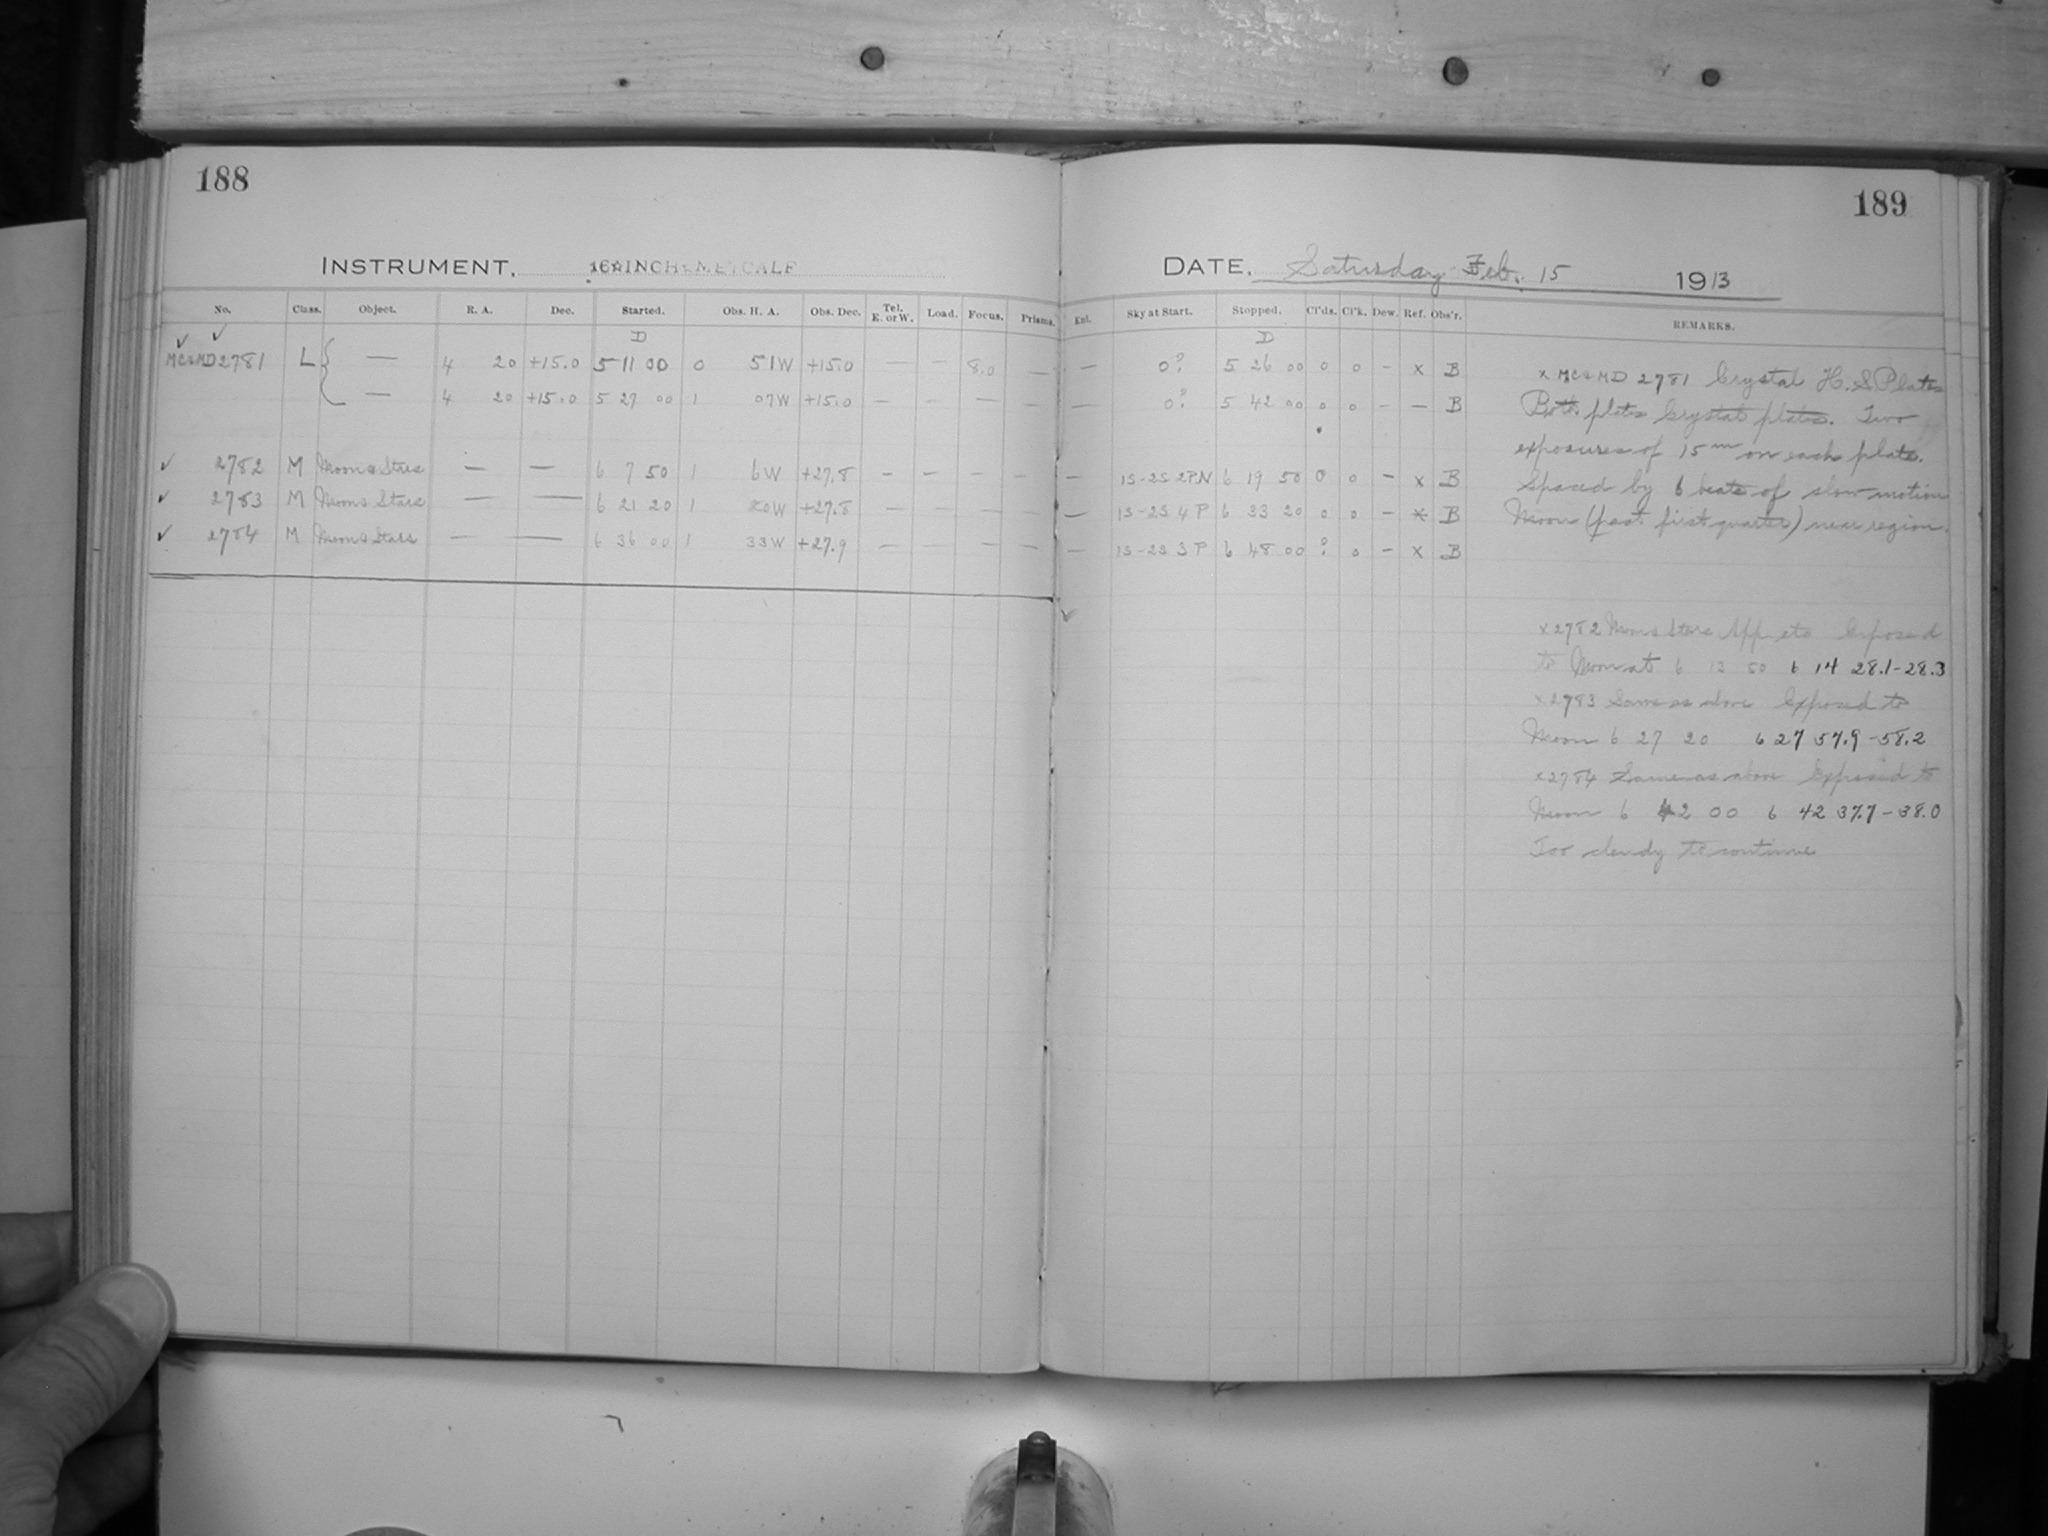 188
INSTRUMENT, 16-INCH METCALF
No. Class. Object. R. A. Dec. Started. Obs. H. A. Obs. Dec. Tel. E. or W. Load. Focus. Prisms.
D
MC & MD 2781 L { — 4 20 +15.0 5 11 00 0 51W +15.0 — — 8.0 —
— 4 20 +15.0 5 27 00 1 07W +15.0 — — — —
2782 M Moon & Stars — — 6 7 50 1 6W +27.8 — — — —
2783 M Moon & Stars — — 6 21 20 1 20W +27.8 — — — —
2784 M Moon & Stars — — 6 36 00 1 33W +27.9 — — — —
189
DATE, Saturday Feb. 15 1913
Ent. Sky at Start. Stopped. Cl'ds. Cl'k. Dew. Ref. Obs'r. REMARKS.
D
— 0? 5 26 00 0 0 – x B
— 0? 5 42 00 0 0 – – B
— 1S-2S 2PN 6 19 50 0 0 – x B
— 1S-2S 4 P 6 33 20 0 0 – x B
— 1S-2S 3 P 6 48 00 ? 0 – x B
x MC & MD 2781 Crystal H. S Plates
Both plates Crystal plates. Two
exposures of 15m on each plate.
Spaced by 6 beats of slow motion
Moon (past first quarter) near region.
x 2782 Moon & Stars App etc Exposed
to Moon at 6 13 50 6 14 28.1-28.3
x 2783 Same as above Exposed to
Moon 6 27 20 6 27 57.9-58.2
x 2784 Same as above Exposed to
Moon 6 42 00 6 42 37.7-38.0
Too cloudy to continue